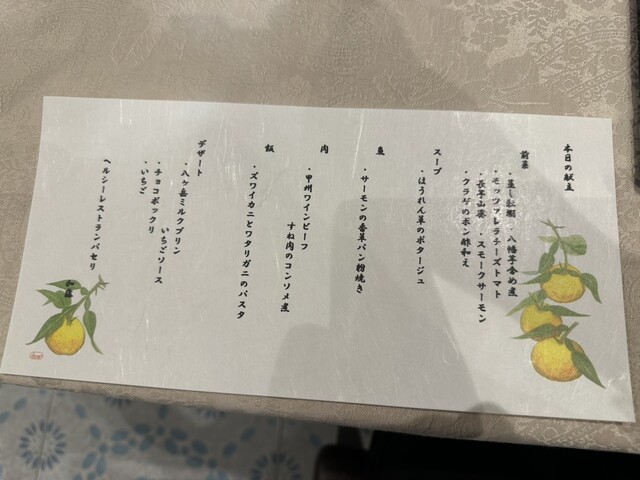 本日の献立
前菜
・蒸し牡蠣 ・八幡芋含め煮
・モッツアレラチーズトマト
・長芋山葵 ・スモークサーモン
・クラゲのポン酢和え
スープ
・ほうれん草のポタージュ
魚
・サーモンの香草パン粉焼き
肉
・甲州ワインビーフ
すね肉のコンソメ煮
飯
・ズワイカニとワタリガニのパスタ
デザート
・八ヶ岳ミルクプリン
いちごソース
・チョコポックリ
・いちご
ヘルシーレストランパセリ